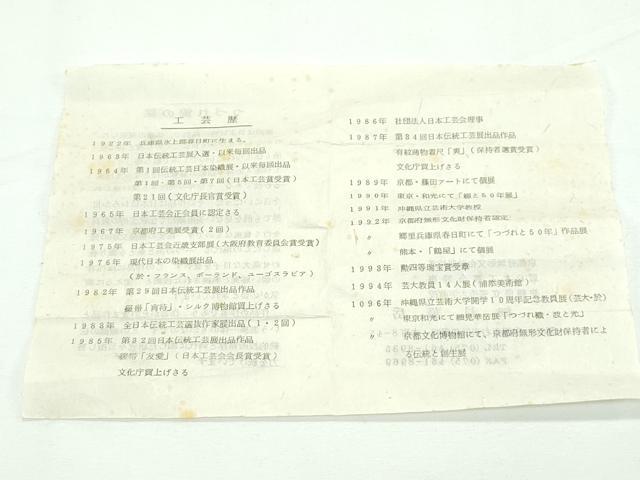 工芸歴
1922年 兵庫県氷上郡春日町に生まる。
1963年 日本伝統工芸展入選・以来毎回出品
1964年 第1回伝統工芸日本染織展・以来毎回出品
第1回・第5回・第7回(日本工芸賞受賞)
第21回(文化庁長官賞受賞)
1965年 日本工芸会正会員に認定さる
1967年 京都府工美展受賞(2回)
1975年 日本工芸会近畿支部展(大阪府教育委員会賞受賞)
1976年 現代日本の染織展出品
(於・フランス、ポーランド、ユーゴスラビア)
1982年 第29回日本伝統工芸展出品作品
綴帯「宵待」・シルク博物館買上げさる
1983年 全日本伝統工芸選抜作家展出品(1・2回)
1985年 第32回日本伝統工芸展出品作品
綴帯「友愛」(日本工芸会会長賞受賞)
文化庁買上げさる
1986年 社団法人日本工芸会理事
1987年 第34回日本伝統工芸展出品作品
有紋薄物着尺「爽」(保持者選賞受賞)
文化庁買上げさる
1989年 京都・藤田アートにて個展
1990年 東京・和光にて「綴と50年展」
1991年 沖縄県立芸術大学教授
1992年 京都府無形文化財保持者認定
〃 郷里兵庫県春日町にて「つづれと50年」作品展
〃 熊本・「鶴屋」にて個展
1993年 勲四等瑞宝賞受章
1994年 芸大教員14人展(浦添美術館)
1096年 沖縄県立芸術大学開学10周年記念教員展(芸大・於)
〃 東京和光にて細見華岳展「つづれ織・波と光」
〃 京都文化博物館にて、京都府無形文化財保持者によ
る伝統と創生展